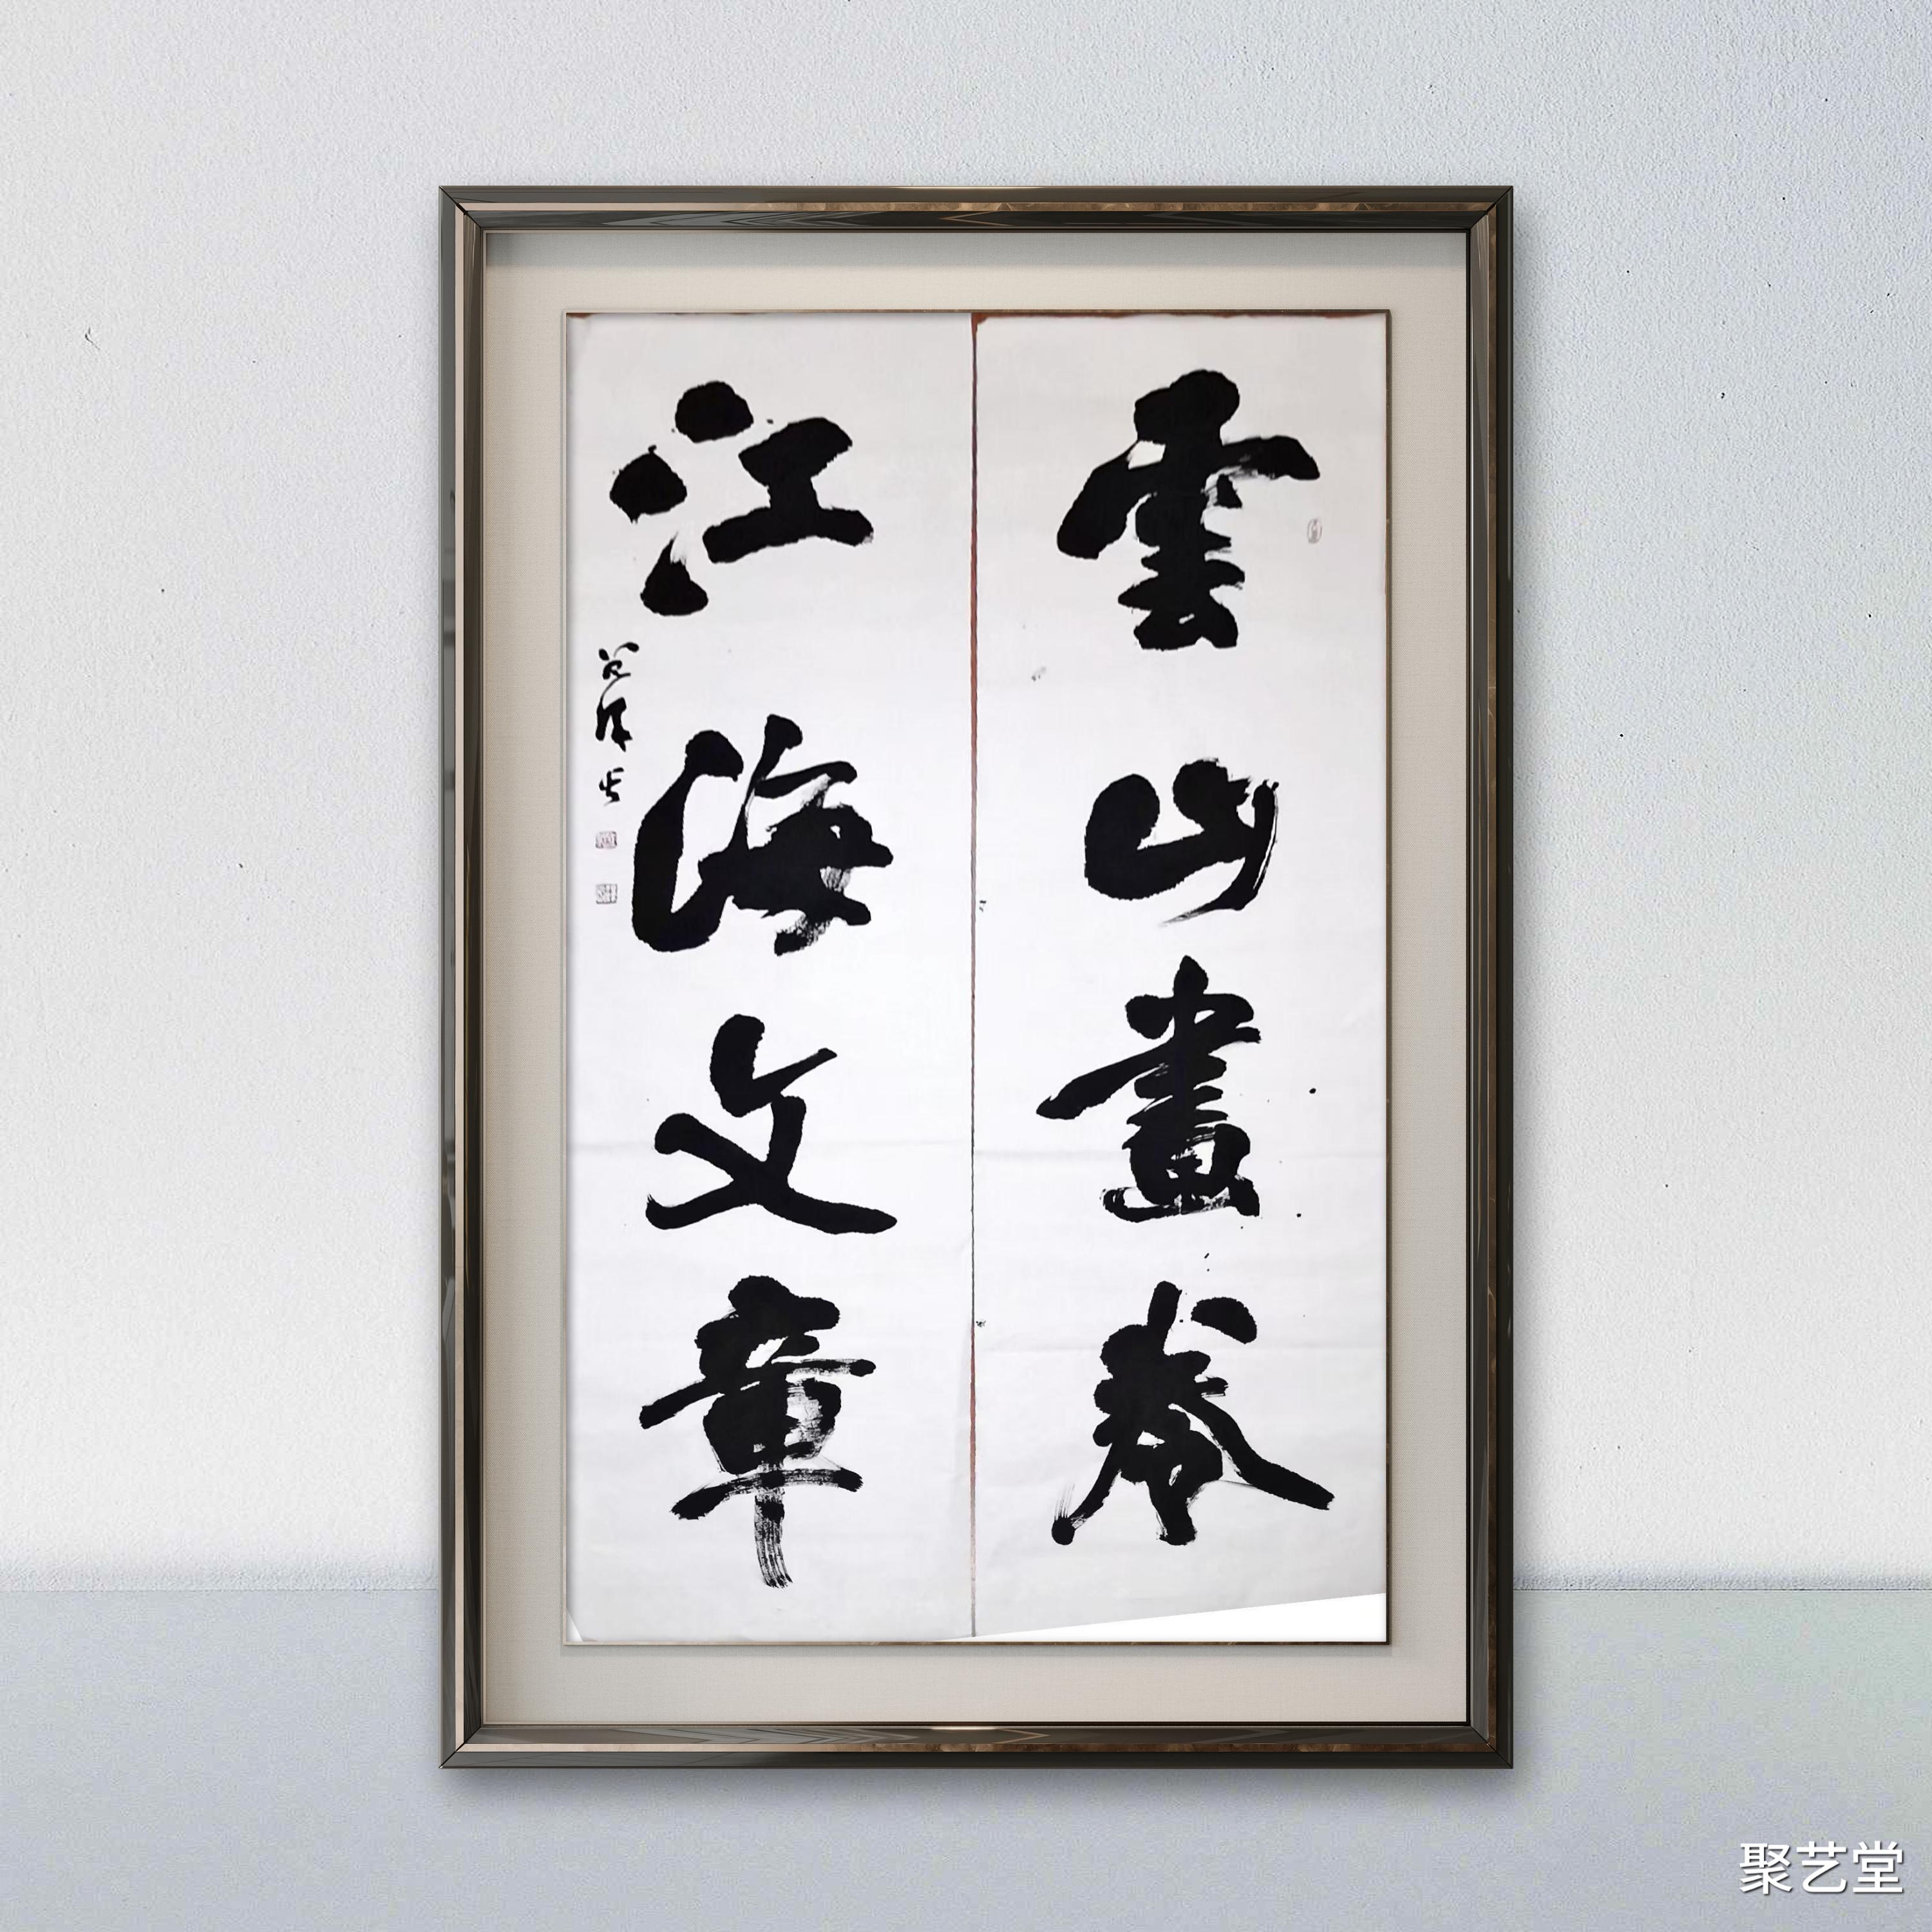 雲山畫卷
江海文章
聚艺堂